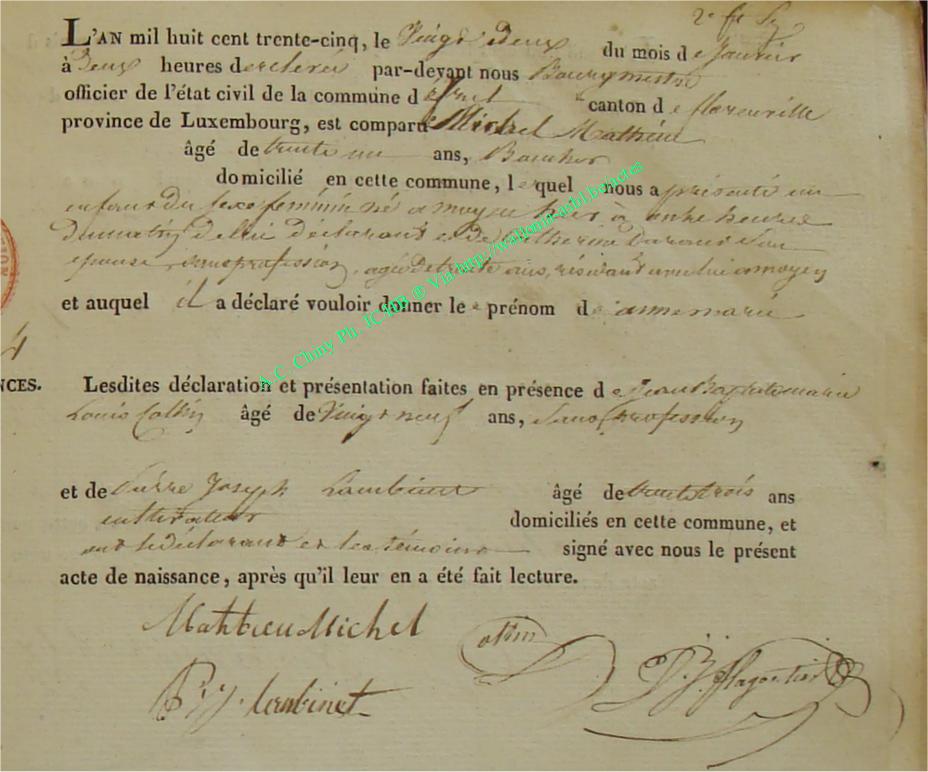 L'AN mil huit cent trente-cinq, le vingt deux du mois de janvier
à deux heures de relevée par-devant nous Bourgmestre
officier de l'état civil de la commune d canton de florenville
province de Luxembourg, est comparu Michel Mathieu
âgé de trente un ans, Boucher
domicilié en cette commune, lequel nous a présenté un
enfant du sexe féminin né a moyen hier à onze heures
du matin de lui declarant et de Catherine son
epouse, sans profession, agée de trente ans, résidant avec lui a moyen
et auquel il a déclaré vouloir donner le prénom de anne marie
4
NCES. Lesdites déclaration et présentation faites en présence de Jean Baptiste marie
Louis Collin âgé de vingt neuf ans, sans profession
et de pierre Joseph Lambinet âgé de trente trois ans
cultivateur domiciliés en cette commune, et
ont le déclarant et les témoins signé avec nous le présent
acte de naissance, après qu'il leur en a été fait lecture.
Mathieu Michel
P. J. Lambinet
A.C. Chiny Ph. JC.Job ® Via http://wallonia-asbl.be/actes